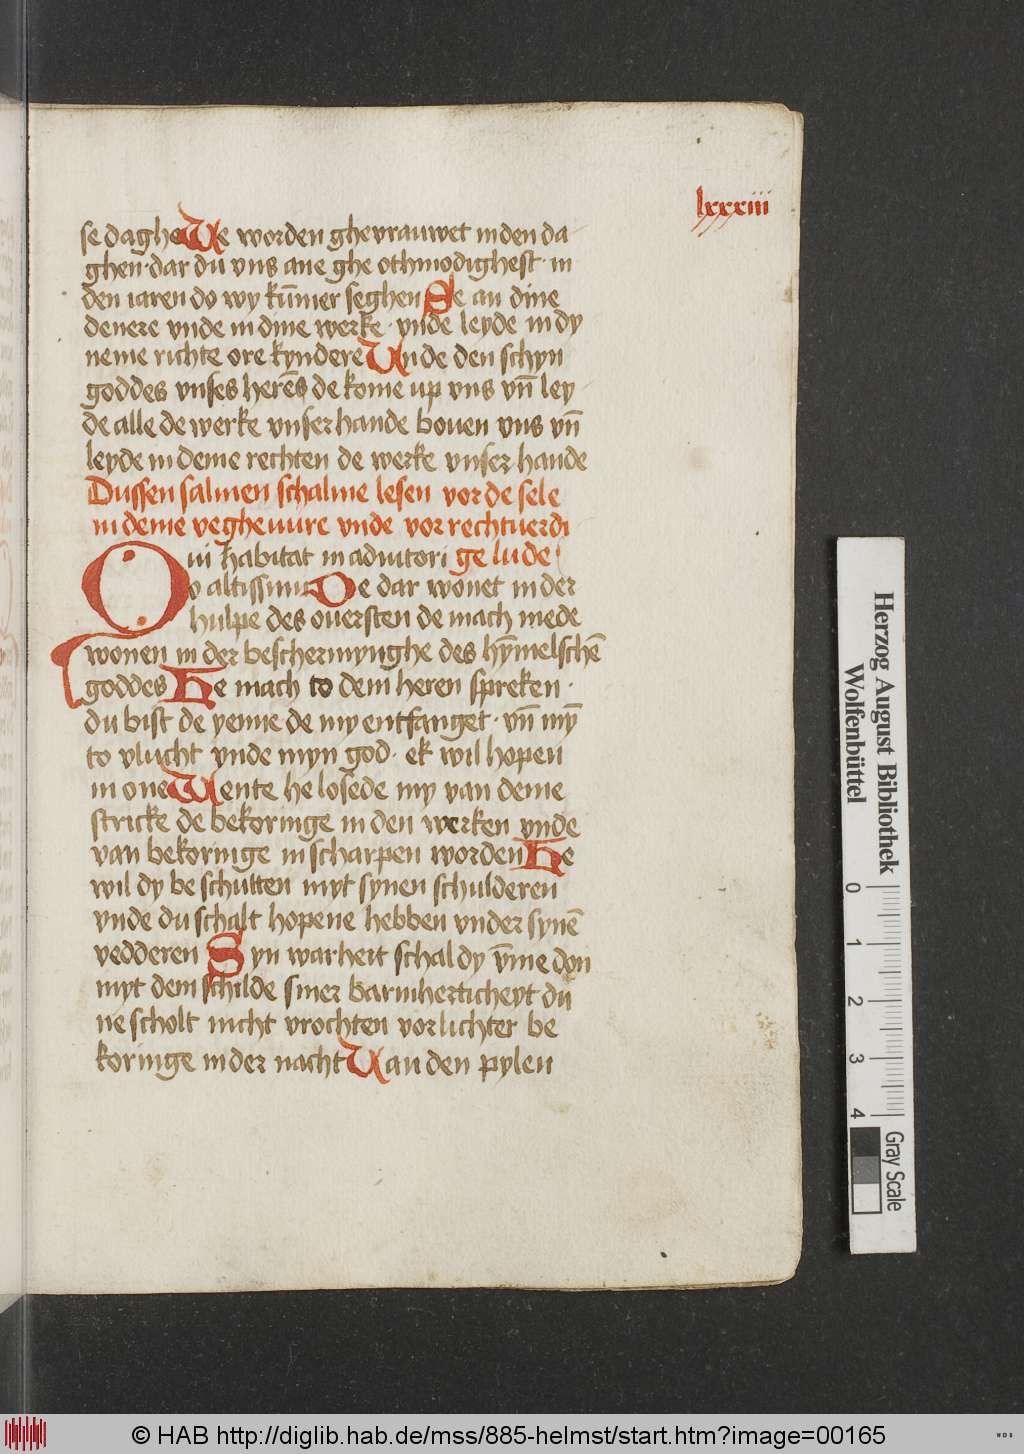 lxxxiii
se daghe We worden ghevrauwet in den da
ghen · dar du vns ane ghe othmodighest · in
den iaren do wy kūmer seghen Se an dine
denere vnde in dine werke · vnde leyde in dy
neme richte ore kyndere Unde den schyn
goddes vnses herēs de kome up vns vn̄ ley
de alle de werke vnser hande boven vns vn̄
leyde in deme rechten de werke vnser hande
Dussen salmen schalme lesen vor de sele
in deme veghevure vnde vor rechtverdi
Qui habitat in adiutori ge lude
o altissimi De dar wonet in der
hulpe des oversten de mach mede
wonen in der beschermynghe des hȳmelschē
goddes He mach to dem heren spreken ·
du bist de yenne de my entfanget · vn̄ mȳ
to vlucht vnde myn god · ek wil hopen
in one Wente he losede my van deme
stricke de bekoringe in den werken vnde
van bekoringe in scharpen worden He
wil dy be schutten myt synen schulderen
vnde du schalt hopene hebben vnder synē
vedderen Syn warheit schal dy v̄me don
myt dem schilde siner barmherticheyt du
ne scholt nicht vrochten vor lichter be
koringe in der nacht Van den pylen
Herzog August Bibliothek
Wolfenbüttel
0 1 2 3 4
Gray Scale
© HAB http://diglib.hab.de/mss/885-helmst/start.htm?image=00165